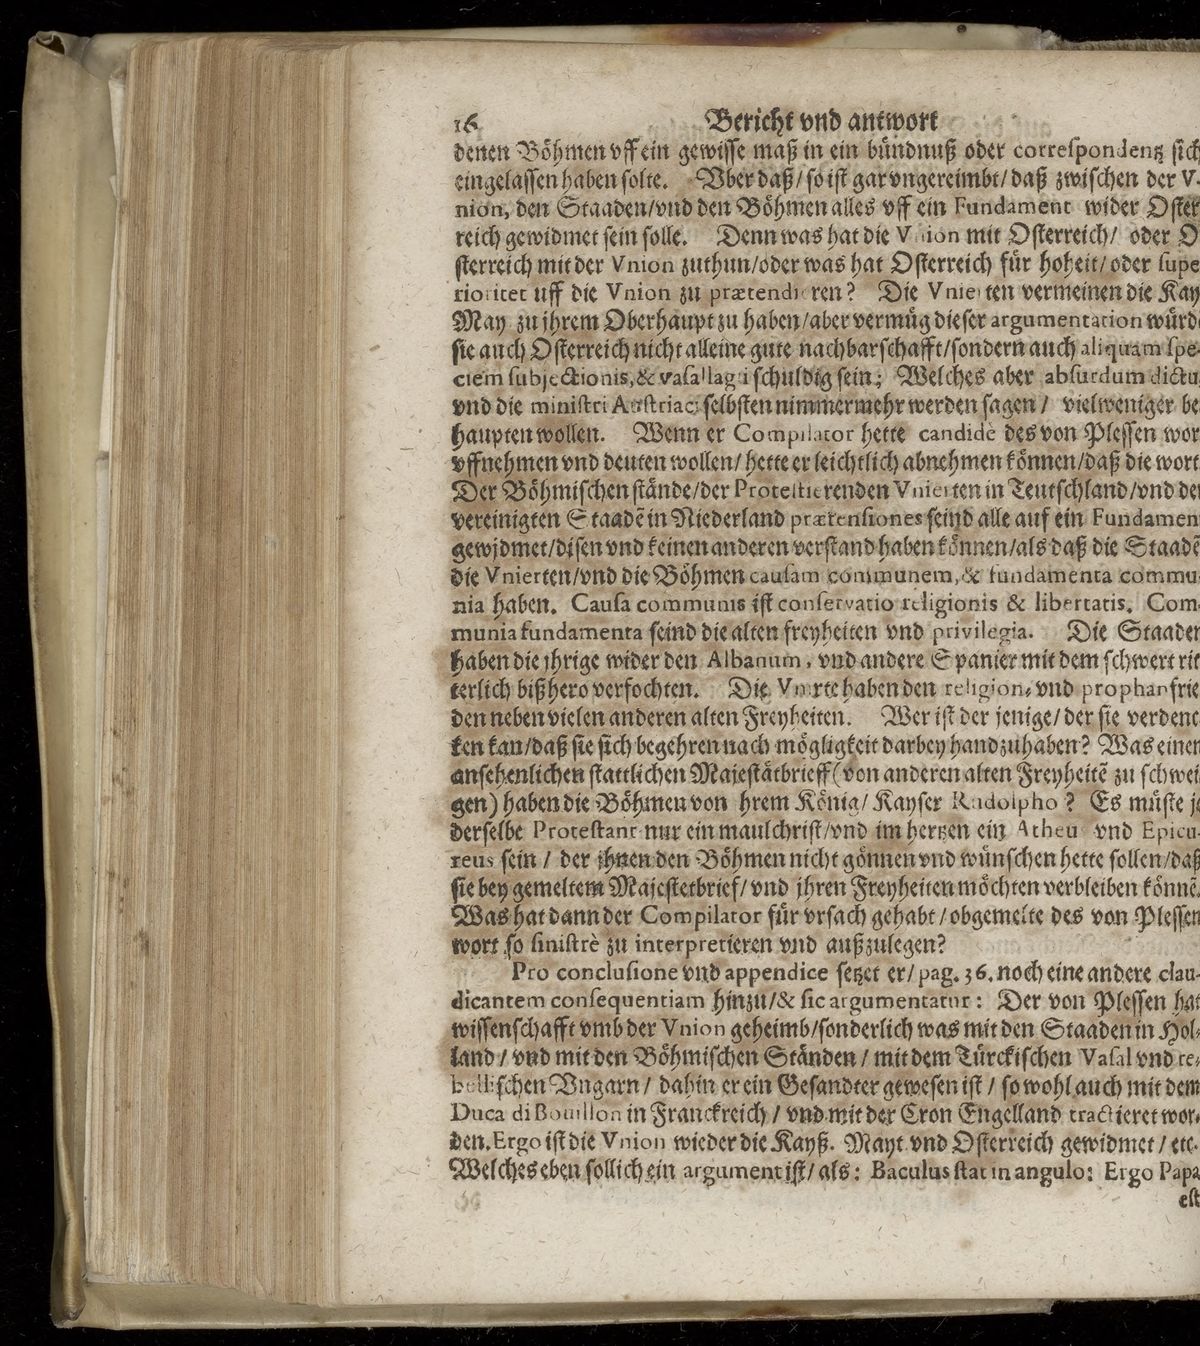 16 Bericht vnd antwort
denen Böhmen vff ein gewisse maß in ein bündnuß oder correſpondentz sich
eingelaſſen haben ſolte. Vber daß/ ſo iſt gar vngereimbt/ daß zwiſchen der V-
nion, den Staaden/ vnd den Böhmen alles vff ein Fundament wider Oſter
reich gewidmet ſein ſolle. Denn was hat die Vnion mit Oſterreich/ oder O
ſterreich mit der Vnion zuthun/ oder was hat Oſterreich für hoheit/ oder ſupe
rioritet uff die Vnion zu prætendieren? Die Vnierten vermeinen die Kay
May zu jhrem Oberhaupt zu haben/ aber vermüg dieſer argumentation würde
ſie auch Oſterreich nicht alleine gute nachbarſchafft/ ſondern auch aliquam ſpe-
ciem ſubjectionis, & vaſallagii ſchuldig ſein; Welches aber abſurdum dictu
vnd die miniſtri Auſtriaci ſelbſten nimmermehr werden ſagen/ vielweniger be
haupten wollen. Wenn er Compilator hette candidè des von Pleſſen wort
vffnehmen vnd deuten wollen/ hette er leichtlich abnehmen können/ daß die wort
Der Böhmiſchen ſtände/ der Proteſtierenden Vnierten in Teutſchland/ vnd der
vereinigten Staadẽ in Niederland prætenſiones ſeind alle auf ein Fundament
gewidmet/ diſen vnd keinen anderen verſtand haben können/ als daß die Staadẽ
die Vnierten/ vnd die Böhmen cauſam communem, & fundamenta commu-
nia haben. Cauſa communis iſt conſervatio religionis & libertatis. Com-
munia fundamenta ſeind die alten freyheiten vnd privilegia. Die Staaden
haben die jhrige wider den Albanum, vnd andere Spanier mit dem ſchwert rit
terlich bißhero verfochten. Die Vnirte haben den religion- vnd prophanfrie
den neben vielen anderen alten Freyheiten. Wer iſt der jenige/ der ſie verdenc
ken kan/ daß ſie ſich begehren nach mögligkeit darbey handzuhaben? Was einen
anſehenlichen ſtattlichen Majeſtätbrieff (von anderen alten Freyheitẽ zu ſchwei
gen) haben die Böhmen von hrem König/ Kayſer Rudolpho? Es müſte je
derſelbe Proteſtant nur ein maulchriſt/ vnd im hertzen ein Atheu vnd Epicu-
reus ſein/ der jhnen den Böhmen nicht gönnen vnd wünſchen hette ſollen/ daß
ſie bey gemeltem Majeſtetbrief/ vnd jhren Freyheiten möchten verbleiben könnẽ.
Was hat dann der Compilator für vrſach gehabt/ obgemelte des von Pleſſen
wort ſo ſiniſtrè zu interpretieren vnd außzulegen?
Pro concluſione vnd appendice ſetzet er/ pag. 36. noch eine andere clau-
dicantem conſequentiam hinzu/ & ſic argumentatur: Der von Pleſſen hat
wiſſenſchafft vmb der Vnion geheimb/ ſonderlich was mit den Staaden in Hol-
land/ vnd mit den Böhmiſchen Ständen/ mit dem Türckiſchen Vaſal vnd re-
belliſchen Vngarn/ dahin er ein Geſandter geweſen iſt/ ſo wohl auch mit dem
Duca di Bouillon in Franckreich/ vnd mit der Cron Engelland tractieret wor-
den. Ergo iſt die Vnion wieder die Kayß. Mayt vnd Oſterreich gewidmet/ etc.
Welches eben ſollich ein argument iſt/ als: Baculus ſtat in angulo: Ergo Papa
eſt